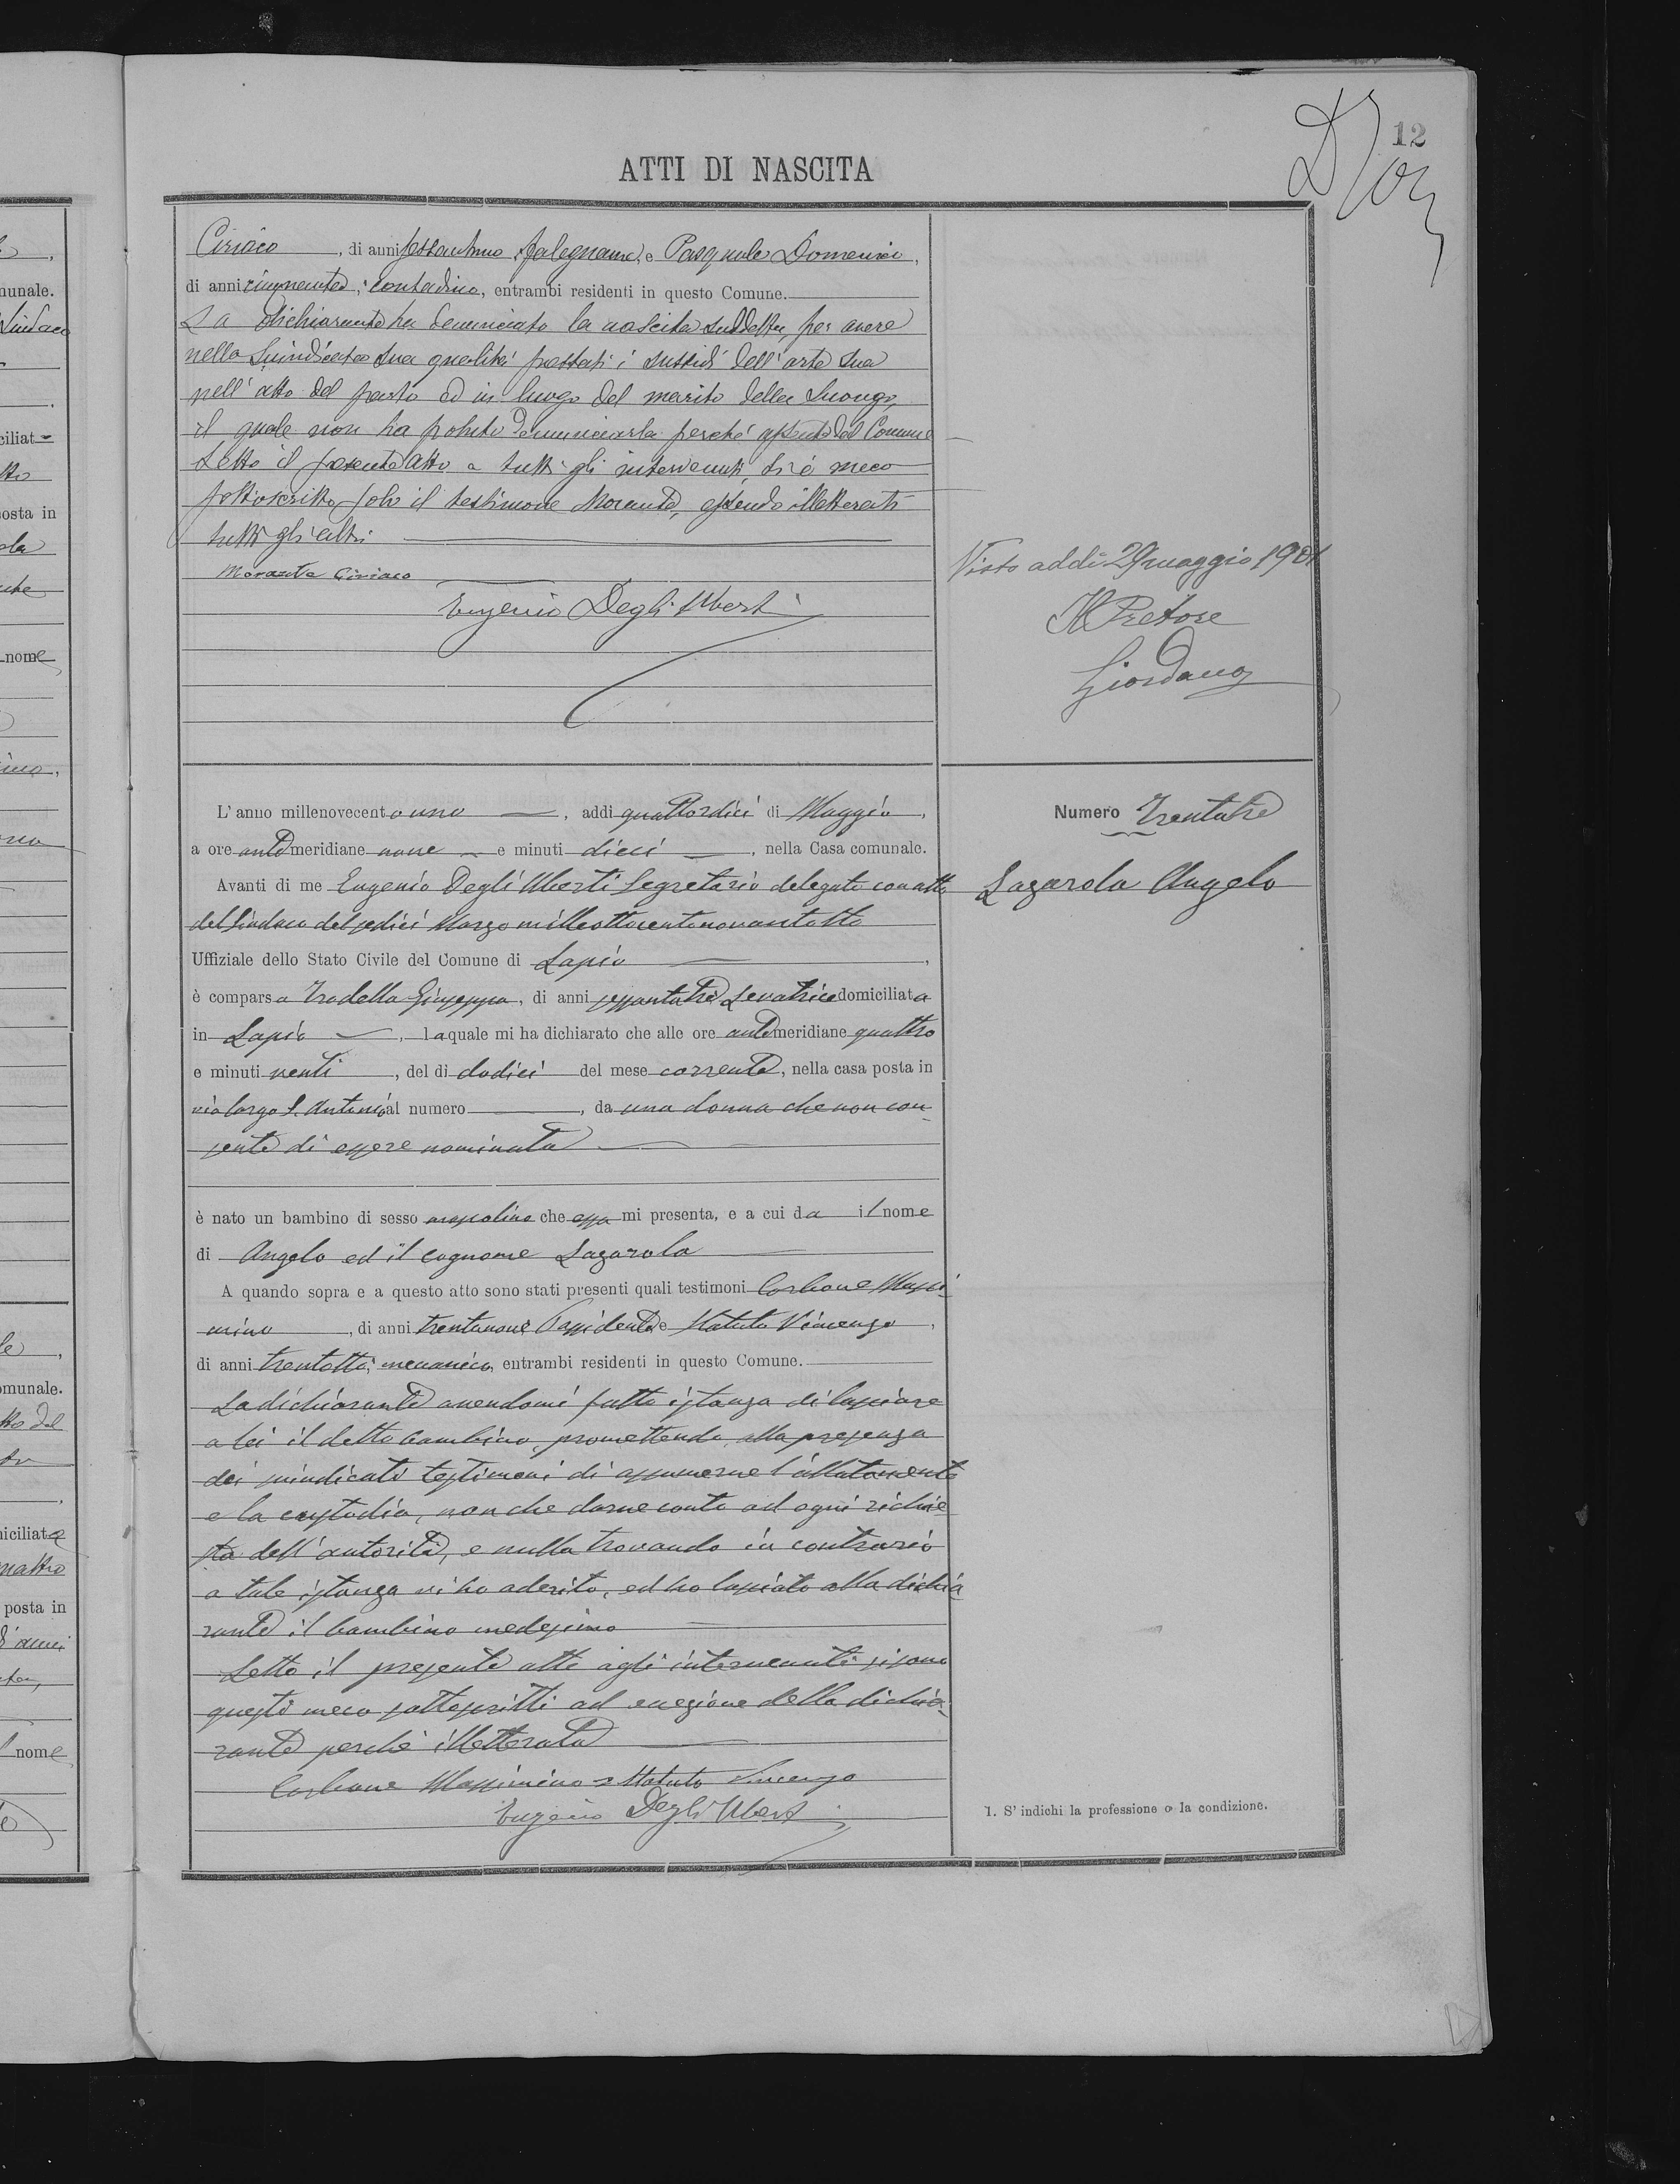 12
ATTI DI NASCITA
Ciriaco, di anni sessantuno, falegname, e Pasquale Domenico,
di anni cinquanta, contadino, entrambi residenti in questo Comune.
La dichiarante ha denunciato la nascita suddetta, per avere
nella suindicata sua qualità prestati i sussidi dell'arte sua
nell'atto del parto ed in luogo del marito della Suongo,
il quale non ha potuto denunciarla perché assente dal Comune
Letto il presente atto a tutti gli intervenuti, si è meco
sottoscritto solo il testimone Morante, essendo illetterati
tutti gli altri
Morante Ciriaco
Eugenio Degli Uberti
Visto addì 29 maggio 1901
Il Pretore
Giordano
L'anno millenovecento uno, addì quattordici di Maggio,
a ore antemeridiane nove e minuti dieci, nella Casa comunale.
Avanti di me Eugenio Degli Uberti Segretario delegato con atto
del Sindaco del sedici Marzo milleottocentonovantotto
Uffiziale dello Stato Civile del Comune di Lapio,
è comparsa Iradella Giuseppa, di anni sessantatre, Levatrice domiciliata
in Lapio, la quale mi ha dichiarato che alle ore antemeridiane quattro
e minuti venti, del dì dodici del mese corrente, nella casa posta in
via largo S. Antonio al numero, da una donna che non con
sente di essere nominata
è nato un bambino di sesso mascolino che essa mi presenta, e a cui da il nome
di Angelo ed il cognome Lazarola
A quando sopra e a questo atto sono stati presenti quali testimoni Carbone Massi
mino, di anni trentanove, Possidente e Statuto Vincenzo,
di anni trentotto, meccanico, entrambi residenti in questo Comune.
La dichiarante avendomi fatto istanza di lasciare
a lei il detto bambino, promettendo, alla presenza
dei suindicati testimoni di assumerne l'allattamento
e la custodia, non che darne conto ad ogni richie
sta dell'autorità, e nulla trovando in contrario
a tale istanza vi ho aderito, ed ho lasciato alla dichia
rante il bambino medesimo
Letto il presente atto agli intervenuti si sono
questi meco sottoscritti ad eccezione della dichia
rante perché illetterata
Carbone Massimino Statuto Vincenzo
Eugenio Degli Uberti
Numero Trentatre
Lazarola Angelo
1. S'indichi la professione o la condizione.